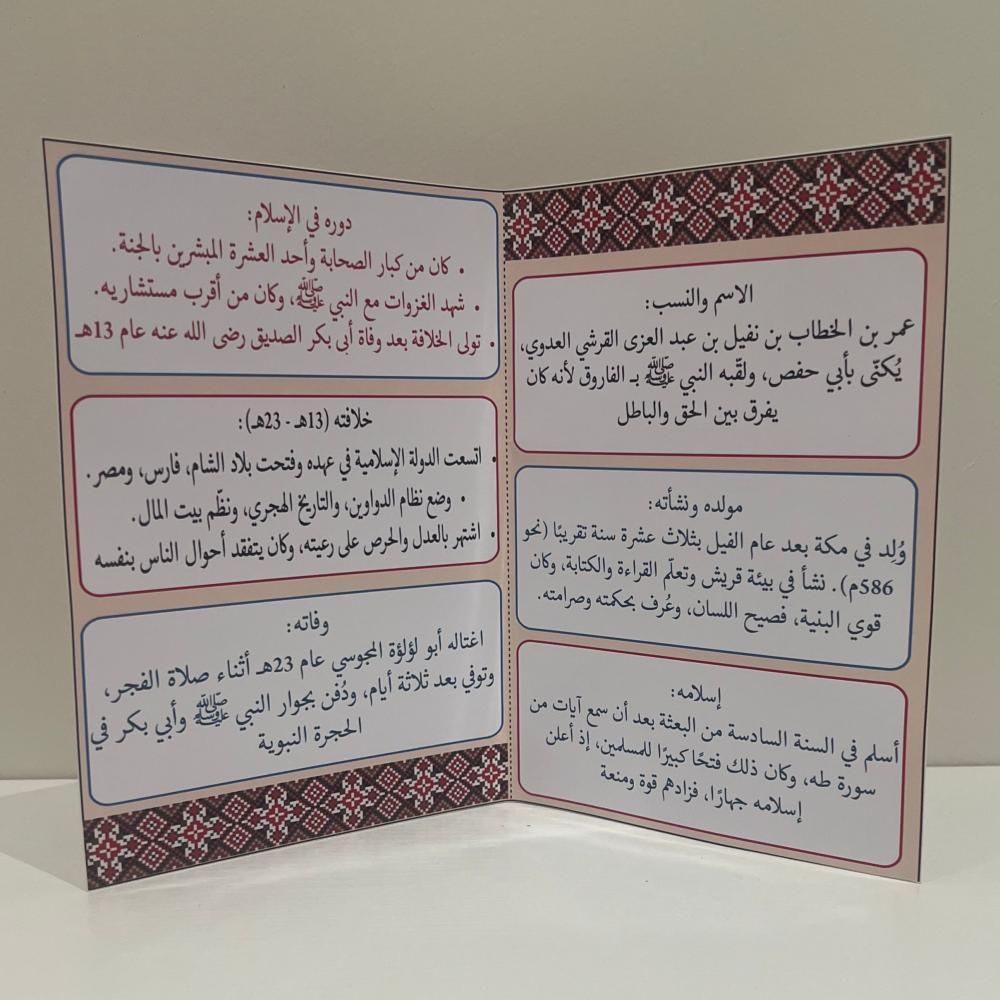 الاسم والنسب:
عمر بن الخطاب بن نفيل بن عبد العزى القرشي العدوي،
يُكنّى بأبي حفص، ولقّبه النبي ﷺ بـ الفاروق لأنه كان
يفرق بين الحق والباطل
مولده ونشأته:
وُلِد في مكة بعد عام الفيل بثلاث عشرة سنة تقريبًا (نحو
586م). نشأ في بيئة قريش وتعلّم القراءة والكتابة، وكان
قوي البنية، فصيح اللسان، وعُرف بحكمته وصرامته.
إسلامه:
أسلم في السنة السادسة من البعثة بعد أن سمع آيات من
سورة طه، وكان ذلك فتحًا كبيرًا للمسلمين، إذ أعلن
إسلامه جهارًا، فزادهم قوة ومنعة
دوره في الإسلام:
• كان من كبار الصحابة وأحد العشرة المبشرين بالجنة.
• شهد الغزوات مع النبي ﷺ، وكان من أقرب مستشاريه.
• تولى الخلافة بعد وفاة أبي بكر الصديق رضى الله عنه عام 13هـ
خلافته (13هـ - 23هـ):
• اتسعت الدولة الإسلامية في عهده وفتحت بلاد الشام، فارس، ومصر.
• وضع نظام الدواوين، والتاريخ الهجري، ونظّم بيت المال.
• اشتهر بالعدل والحرص على رعيته، وكان يتفقد أحوال الناس بنفسه
وفاته:
اغتاله أبو لؤلؤة المجوسي عام 23هـ أثناء صلاة الفجر،
وتوفي بعد ثلاثة أيام، ودُفن بجوار النبي ﷺ وأبي بكر في
الحجرة النبوية